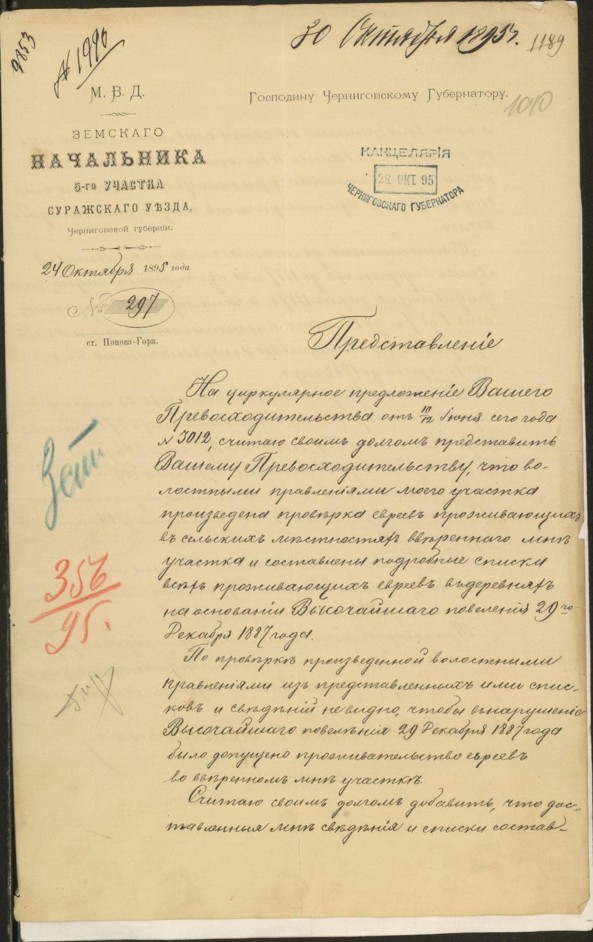 30 Октября 1895 г.
1189
9853
№ 1990
М. В. Д.
Господину Черниговскому Губернатору.
1010
ЗЕМСКАГО
НАЧАЛЬНИКА
5-го УЧАСТКА
СУРАЖСКАГО УѢЗДА,
Черниговской губерніи.
КАНЦЕЛЯРІЯ
28 ОКТ. 95
ЧЕРНИГОВСКАГО ГУБЕРНАТОРА
24 Октября 1895 года
№ 297
ст. Попова-Гора.
Представленіе
На циркулярное предложеніе Вашего
Превосходительства отъ 10/12 Іюня сего года
№ 3012, считаю своимъ долгомъ представить
Вашему Превосходительству, что во-
лостными правленіями моего участка
произведена провѣрка евреевъ проживающихъ
въ сельскихъ мѣстностяхъ ввѣреннаго мнѣ
участка и составлены подробные списки
всѣхъ проживающихъ евреевъ въ деревняхъ
на основаніи Высочайшаго повеленія 29го
Декабря 1887 года.
По провѣркѣ произведенной волостными
правленіями изъ представленныхъ ими спис-
ковъ и свѣдѣній не видно, чтобы въ нарушеніе
Высочайшаго повелѣнія 29 Декабря 1887 года
было допущено проживательство евреевъ
во ввѣренномъ мнѣ участкѣ
Считаю своимъ долгомъ добавить, что дос-
тавленныя мнѣ свѣдѣнія и списки состав-
356
95.